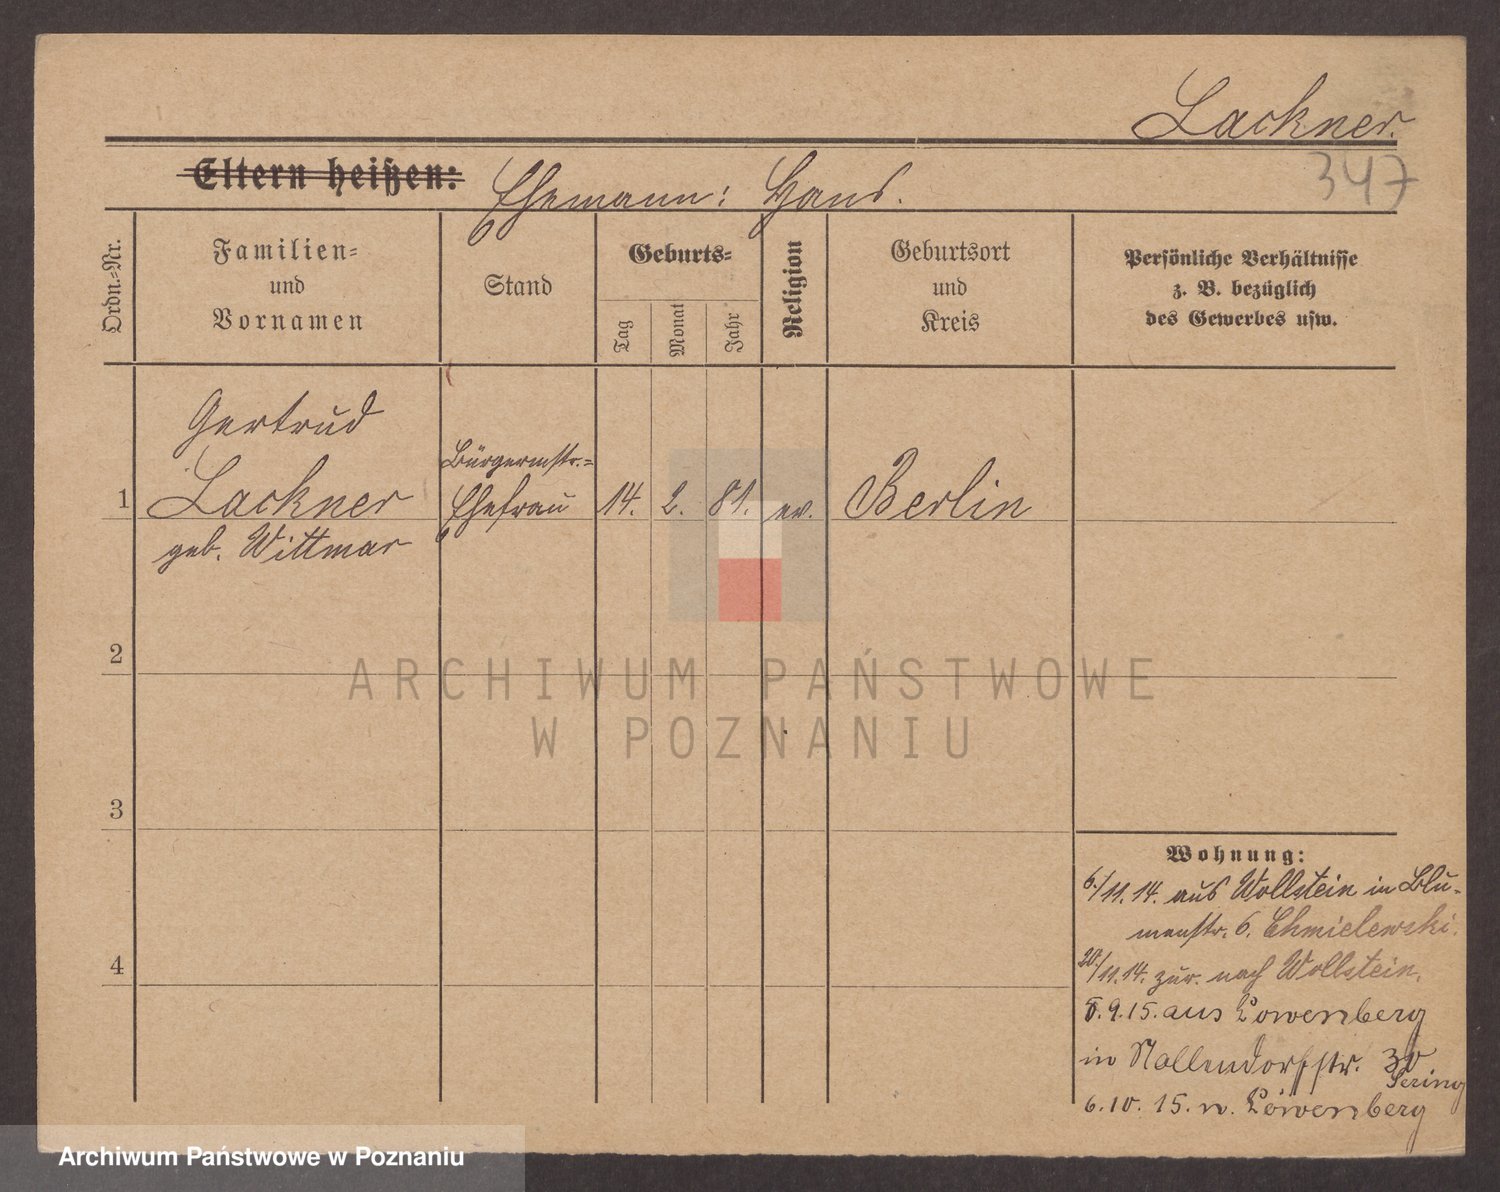 Lackner.
347
Eltern heißen: Ehemann: Hans.
Ordn.-Nr.
Familien-
und
Vornamen
Stand
Geburts-
Tag
Monat
Jahr
Religion
Geburtsort
und
Kreis
Persönliche Verhältnisse
z. B. bezüglich
des Gewerbes usw.
Gertrud
Bürgermstr.-
1 Lackner Ehefrau 14. 2. 81. ev. Berlin
geb. Wittmar
2
3
4
Wohnung:
6./11.14. aus Wollstein in Blu-
menstr. 6. Chmielewski.
20./11.14. zur. nach Wollstein.
5.9.15. aus Löwenberg
in Nollendorfstr. 30
Sering
6.10.15. n. Löwenberg
ARCHIWUM PAŃSTWOWE
W POZNANIU
Archiwum Państwowe w Poznaniu